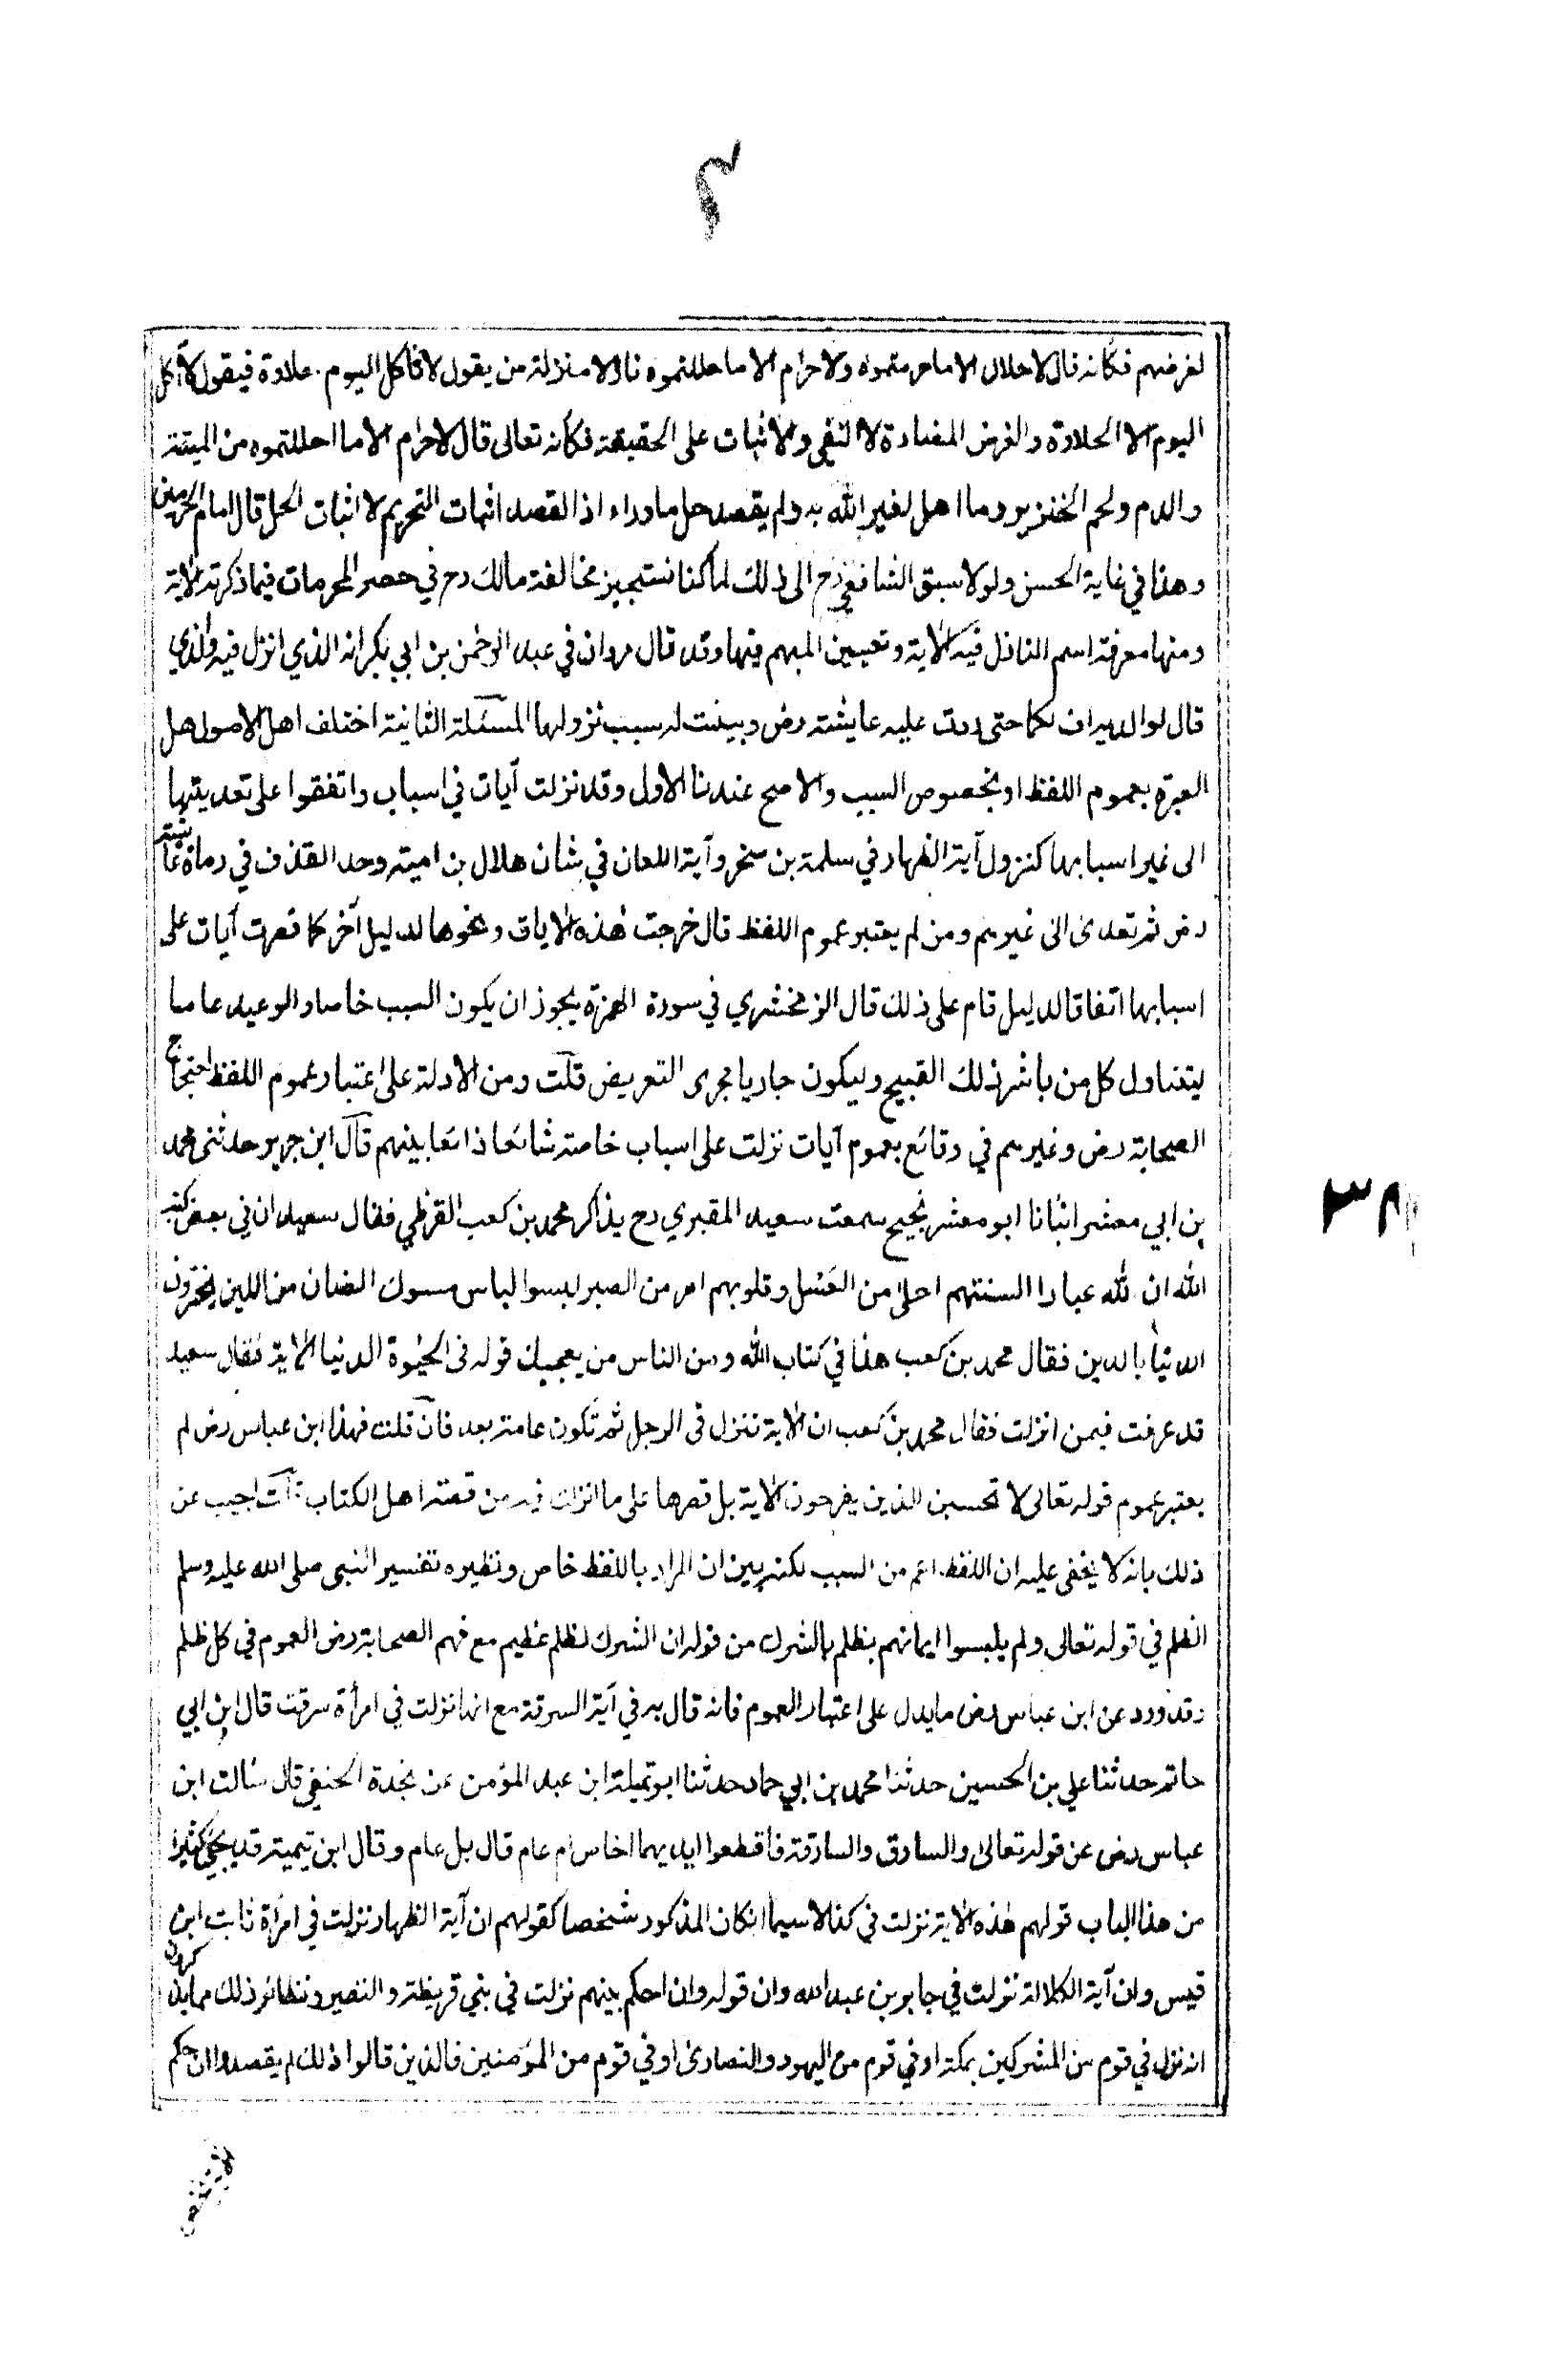 لغرضهم فكأنه قال لاحلال الا ماحرمتموه ولاحرام الا ما حللتموه نازلا منزلة من يقول لا تأكل اليوم حلاوة فيقول لا آكل
اليوم الا الحلاوة والغرض المضادة لا النفي والاثبات على الحقيقة فكأنه تعالى قال لاحرام الا ما احللتموه من الميتة
والدم ولحم الخنزير وما اهل لغير الله به ولم يقصد حل ماوراءه اذ القصد اثبات التحريم لا اثبات الحل قال امام الحرمين
وهذا في غاية الحسن ولولا سبق الشافعي رح الى ذلك لما كنا نستجيز مخالفة مالك رح في حصر المحرمات فيما ذكرته الاية
ومنها معرفة اسم النازل فيه الاية وتعيين المبهم فيها وقد قال مروان في عبد الرحمن بن ابي بكر انه الذي انزل فيه والذي
قال لوالديه اف لكما حتى ردت عليه عايشة رض وبينت له سبب نزولها المسئلة الثانية اختلف اهل الاصول هل
العبرة بعموم اللفظ او بخصوص السبب والاصح عندنا الاول وقد نزلت آيات في اسباب واتفقوا على تعديتها
الى غير اسبابها كنزول آية الظهار في سلمة بن صخر وآية اللعان في شان هلال بن امية وحد القذف في رماة عائشة
رض ثم تعدى الى غيرهم ومن لم يعتبر عموم اللفظ قال خرجت هذه الايات ونحوها لدليل آخر كما قصرت آيات على
اسبابها اتفاقا لدليل قام على ذلك قال الزمخشري في سورة الهمزة يجوز ان يكون السبب خاصا والوعيد عاما
ليتناول كل من باشر ذلك القبيح وليكون جاريا مجرى التعريض قلت ومن الادلة على اعتبار عموم اللفظ احتجاج
الصحابة رض وغيرهم في وقائع بعموم آيات نزلت على اسباب خاصة شائعا ذائعا بينهم قال ابن جرير حدثني محمد
بن ابي معشر انبانا ابو معشر نجيح سمعت سعيد المقبري رح يذاكر محمد بن كعب القرظي فقال سعيد ان في بعض كتب
الله ان لله عبادا السنتهم احلى من العسل وقلوبهم امر من الصبر لبسوا لباس مسوك الضان من اللين يجترون
الدنيا بالدين فقال محمد بن كعب هذا في كتاب الله ومن الناس من يعجبك قوله في الحيوة الدنيا الاية فقال سعيد
قد عرفت فيمن انزلت فقال محمد بن كعب ان الاية تنزل في الرجل ثم تكون عامة بعد فان قلت فهذا ابن عباس رض لم
يعتبر عموم قوله تعالى لا تحسبن الذين يفرحون الاية بل قصرها على ما انزلت فيه من قصة اهل الكتاب قلت اجيب عن
ذلك بانه لا يخفى عليه ان اللفظ اعم من السبب لكنه بين ان المراد باللفظ خاص ونظيره تفسير النبي صلى الله عليه وسلم
الظلم في قوله تعالى ولم يلبسوا ايمانهم بظلم بالشرك من قوله ان الشرك لظلم عظيم مع فهم الصحابة رض العموم في كل ظلم
وقد ورد عن ابن عباس رض ما يدل على اعتبار العموم فانه قال به في آية السرقة مع انها نزلت في امرأة سرقت قال ابن ابي
حاتم حدثنا علي بن الحسين حدثنا محمد بن ابي حماد حدثنا ابو تميلة ابن عبد المؤمن عن نجدة الحنفي قال سالت ابن
عباس رض عن قوله تعالى والسارق والسارقة فاقطعوا ايديهما اخاص ام عام قال بل عام وقال ابن تيمية قد يجئ كثيرا
من هذا الباب قولهم هذه الاية نزلت في كذا لاسيما انكان المذكور شخصا كقولهم ان آية الظهار نزلت في امرأة ثابت ابن
قيس وان آية الكلالة نزلت في جابر بن عبد الله وان قوله وان احكم بينهم نزلت في بني قريظة والنضير ونظائر ذلك مما يذكرون
انه نزل في قوم من المشركين بمكة او في قوم من اليهود والنصارى او في قوم من المؤمنين فالذين قالوا ذلك لم يقصدوا ان حكم